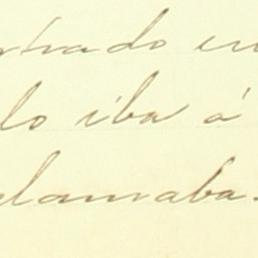 trado en
lo iba á
clamaba.